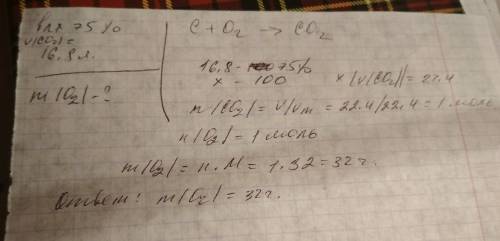 вых 75%
V(CO₂)=
16,8 л.
m(O₂)-?
C + O₂ → CO₂
16,8 - 75%
x - 100
x (V(CO₂))= 22.4
n(CO₂)= V/Vm = 22.4/22.4 = 1 моль
n(O₂)= 1 моль
m(O₂)= n.M = 1.32=32г.
Ответ: m(O₂)= 32г.